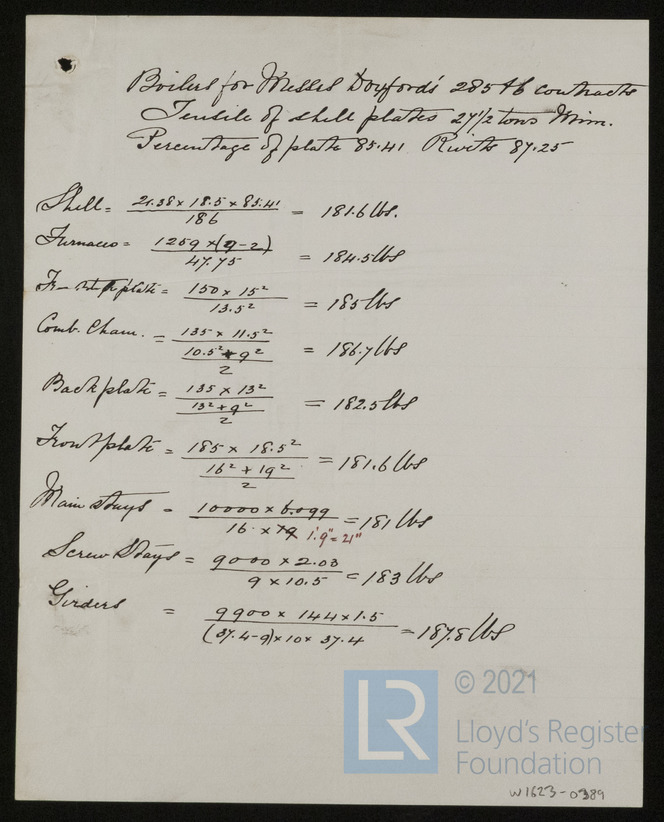 Boilers for Messrs Doxford's 285th contracts
Tensile of shell plates 27 1/2 tons Mim.
Percentage of plate 85.41 Rivets 87.25
Shell = 21.38 x 18.5 x 85.41 / 186 = 181.6 lbs.
Furnaces = 1259 x (9-2) / 47.75 = 184.5 lbs
plate = 150 x 15² / 13.5² = 185 lbs
Comb. Cham. = 135 x 11.5² / 10.5² + 9² / 2 = 186.7 lbs
Back plate = 135 x 13² / 13² + 9² / 2 = 182.5 lbs
Front plate = 185 x 18.5² / 16² + 19² / 2 = 181.6 lbs
Main Stays = 10000 x 6.099 / 16 x 19 = 181 lbs
1'.9" = 21"
Screw Stays = 9000 x 2.03 / 9 x 10.5 = 183 lbs
Girders = 9900 x 144 x 1.5 / (37.4-9) x 10 x 37.4 = 187.8 lbs
LR
© 2021
Lloyd's Register
Foundation
W1623-0389